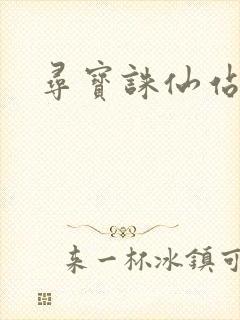 尋寶誅仙佔
来一杯冰鎮可